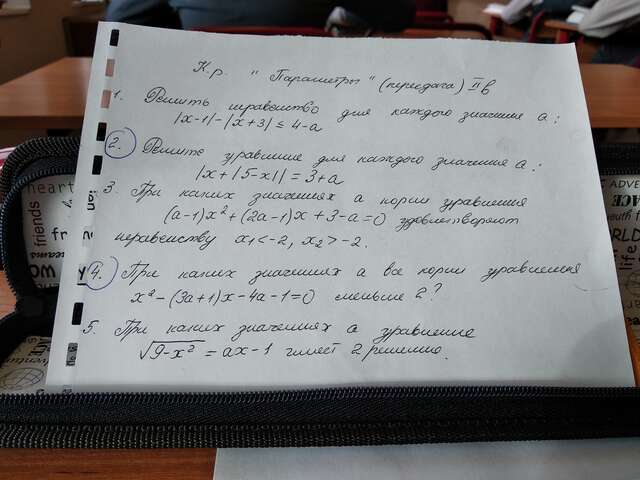 К.р. "Параметры" (пересдача) II в
1. Решить неравенство для каждого значения а:
|x-1|-|x+3| ≤ 4-a
2. Решите уравнение для каждого значения а:
|x+|5-x|| = 3+a
3. При каких значениях а корни уравнения
(a-1)x²+(2a-1)x+3-a=0 удовлетворяют
неравенству x₁<-2, x₂>-2.
4. При каких значениях а все корни уравнения
x²-(3a+1)x-4a-1=0 меньше 2?
5. При каких значениях а уравнение
√9-x² = ax-1 имеет 2 решения.
here
friends
family
OM
ADVE
PEACE
outh f
life